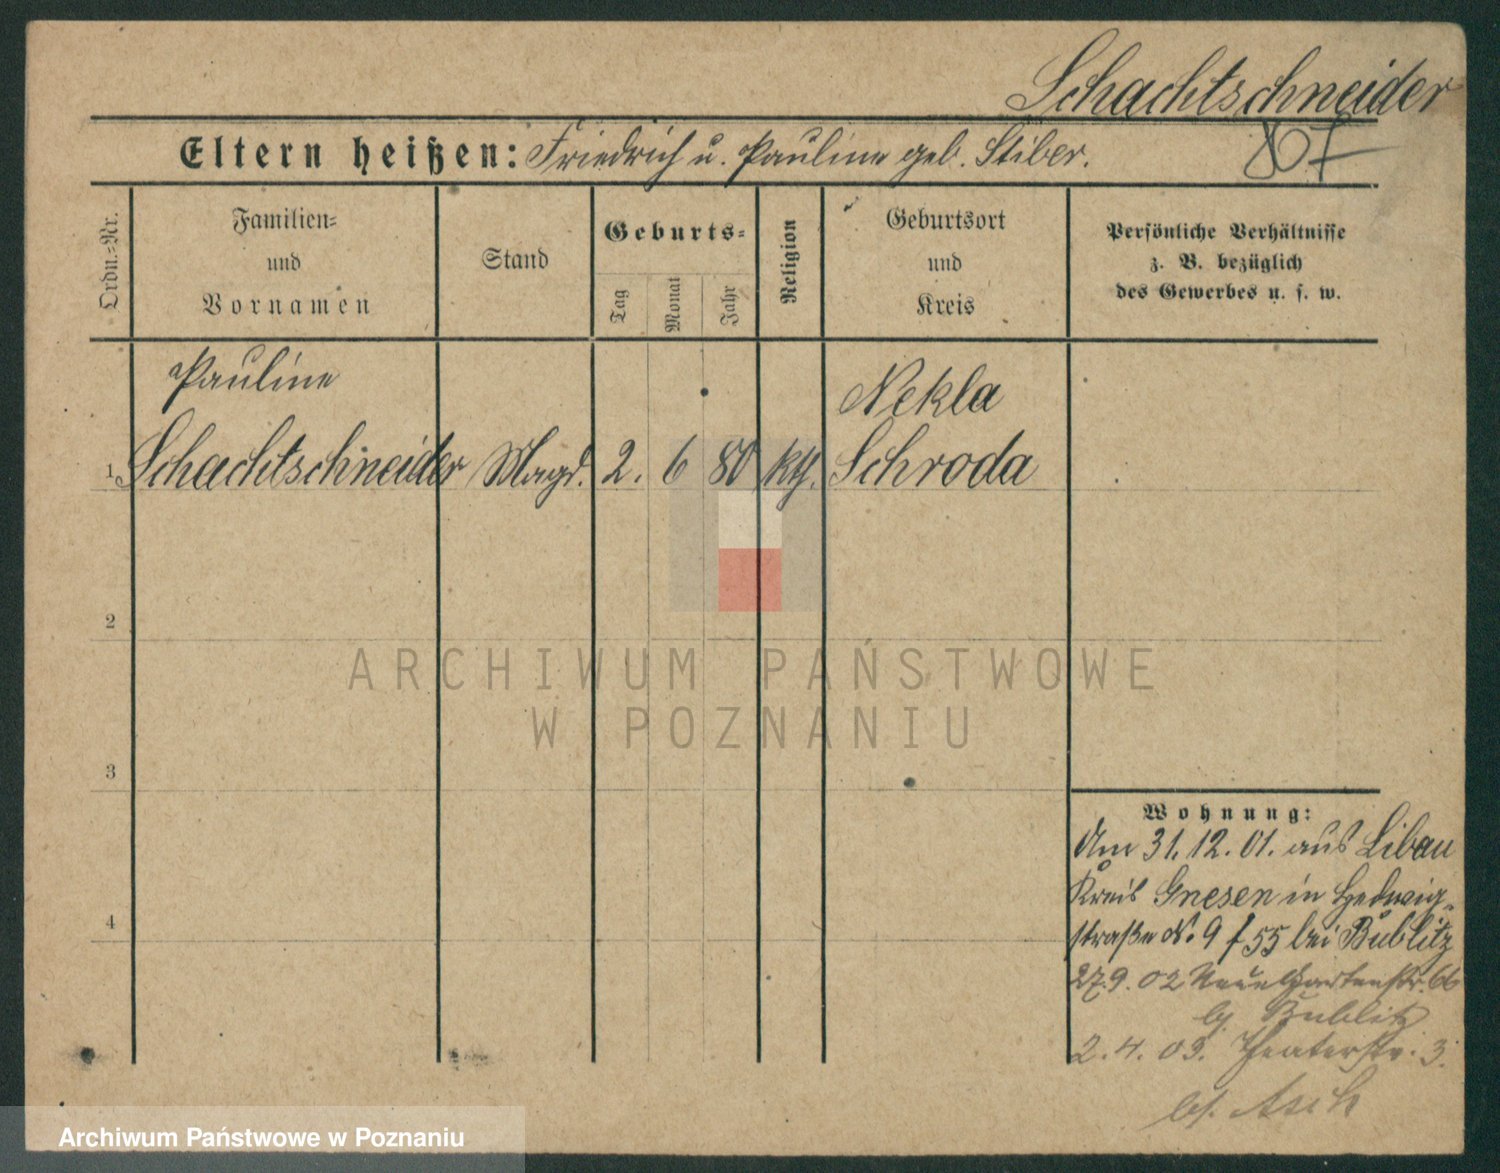 Schachtschneider
Eltern heißen: Friedrich u. Pauline geb. Stiber.
867
Ordn.=Nr.
Familien=
und
Vornamen
Stand
Geburts=
Tag
Monat
Jahr
Religion
Geburtsort
und
Kreis
Persönliche Verhältnisse
z. B. bezüglich
des Gewerbes u. s. w.
Pauline
Nekla
1 Schachtschneider Magd. 2. 6 80 kth. Schroda
2
3
4
ARCHIWUM PAŃSTWOWE
W POZNANIU
Wohnung:
Am 31.12.01. aus Libau
Kreis Gnesen in Hedwig-
straße N. 9 f 55 bei Bublitz
27.9.02 Neue Gartenstr. 66
bj. Bublitz
2.4.03. Theaterstr. 3.
bj. Asch
Archiwum Państwowe w Poznaniu